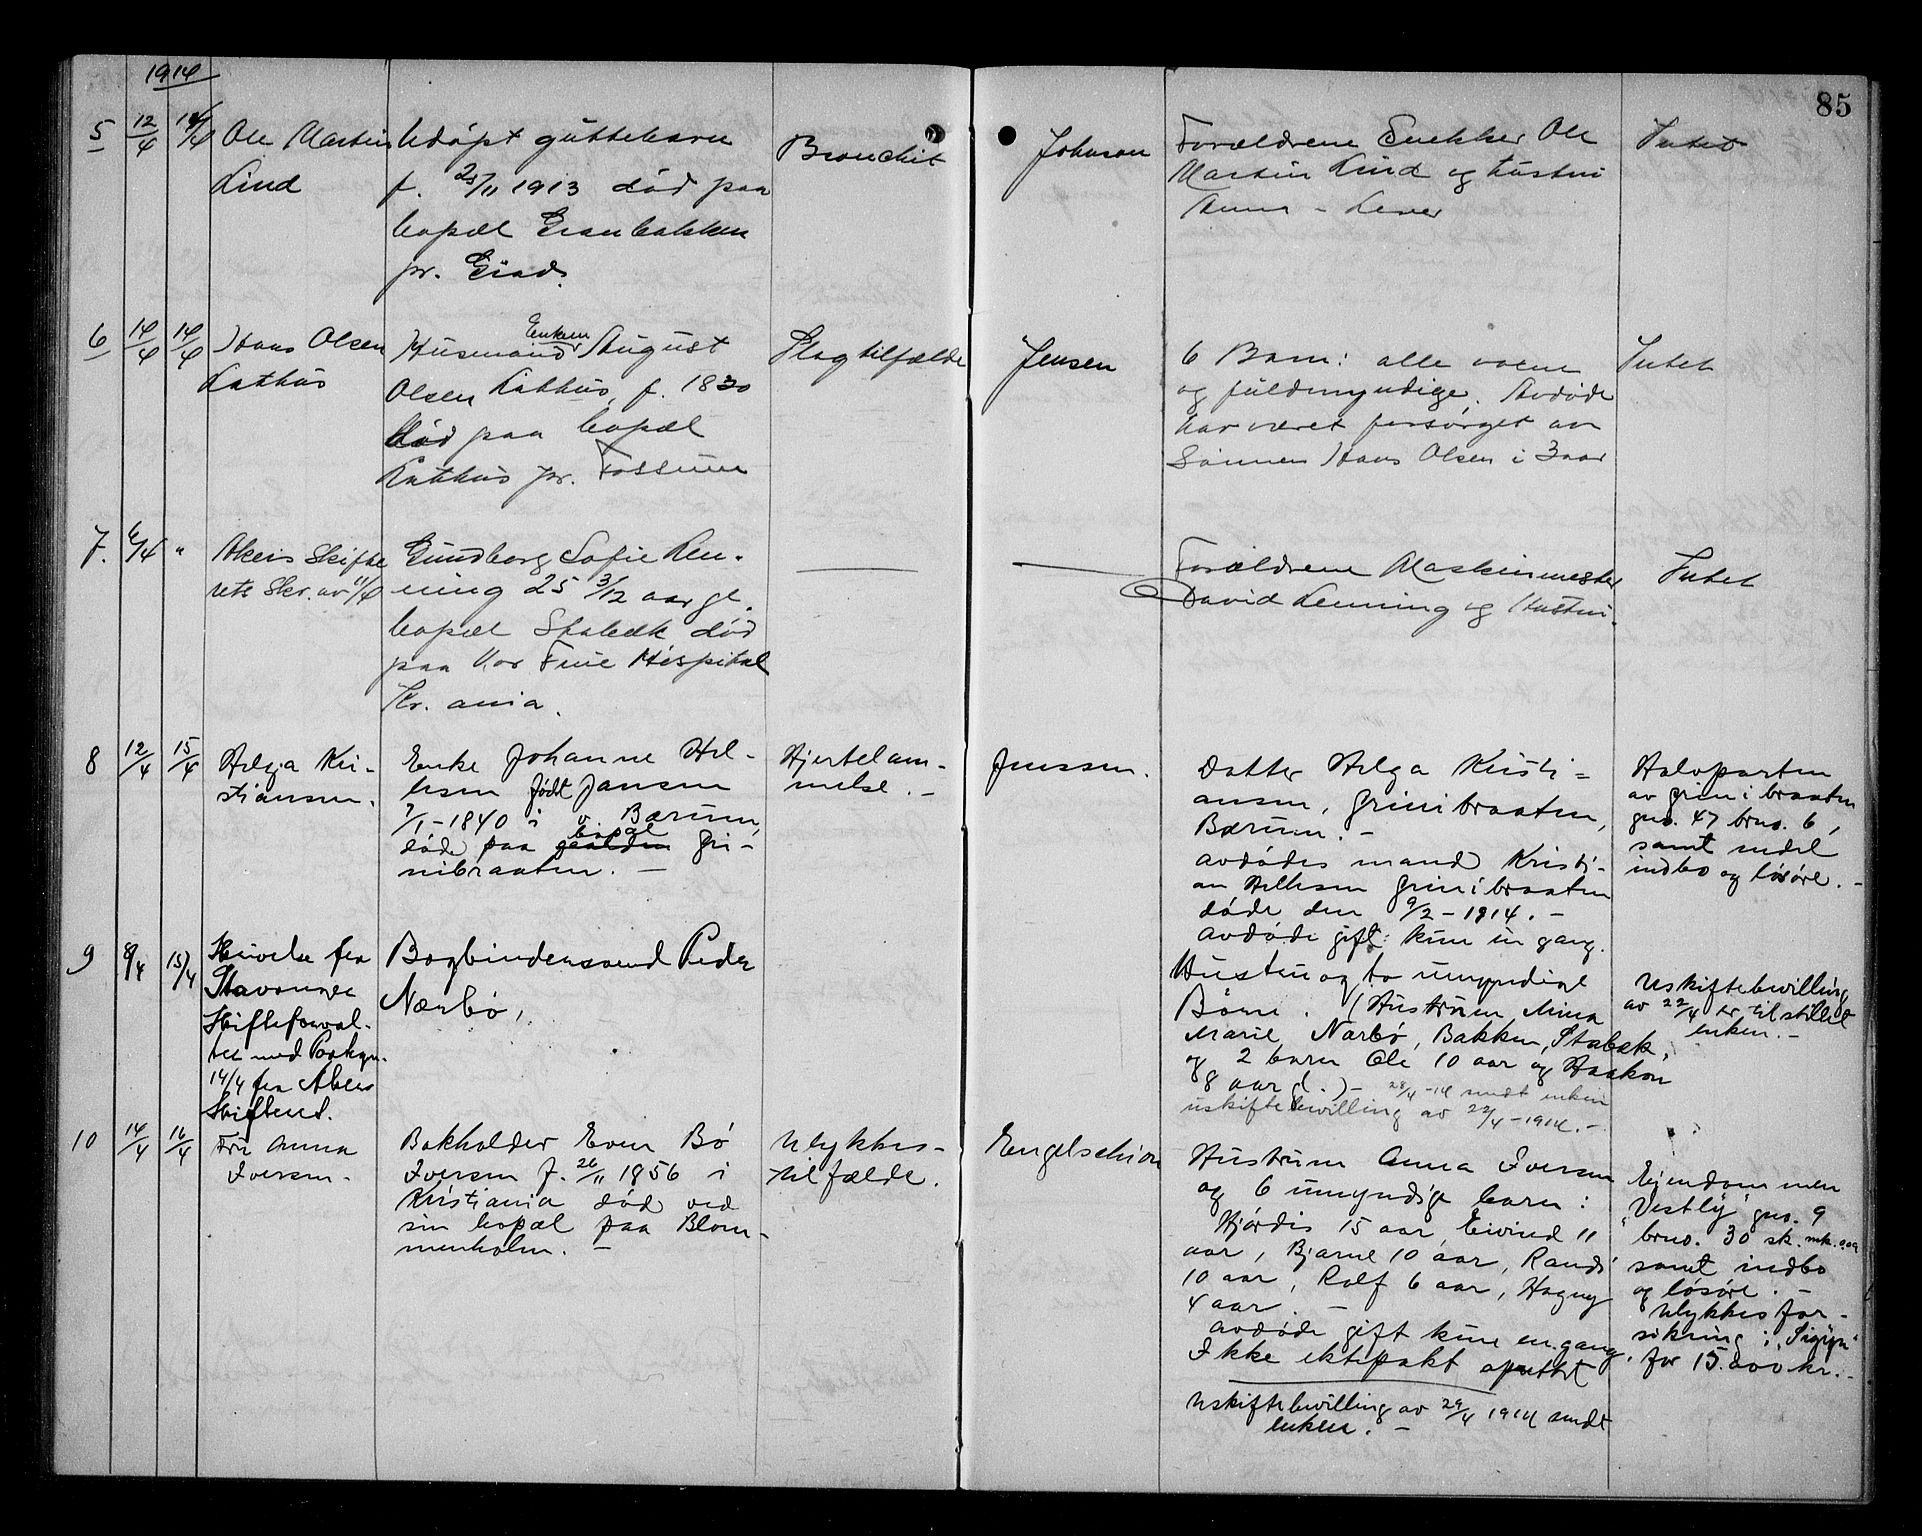 1914
85
5 12/4 14/4 Ole Martin
Lind
Udøpt guttebarn
f. 25/11 1913 død paa
bopæl Granbakken
pr. Griad.
Bronchit
Johnson
Forældrene Snekker Ole
Martin Lind og hustru
Anna - Lever
Intet
6 14/4 14/4 Hans Olsen
Kathus
Enkem
Husmand August
Olsen Kathus, f. 1830
død paa bopæl
Kathus pr. Fossum
Slagtilfælde
Jensen
6 Barn: alle voxne
og fuldmyndige. Avdøde
har været forsørget av
Sønnen Hans Olsen i 3 aar
Intet
7. 6/4 " Akers Skifte
rets Skr. av 11/4
Gundborg Sofie Len-
ning 25 3/12 aar gl.
bopæl Stabæk død
paa Vor Frue Hospital
Kr. ania.
Forældrene Maskinmester
David Lenning og Hustru.
Intet
8 12/4 15/4 Helga Kri-
stiansen.
Enke Johanne Hel-
lesen født Jansen
7/1-1840 i v. Bærum,
bopæl
døde paa gaarden Gri-
nibraaten. -
Hjertelam-
melse. -
Jenssen.
Datter Helga Kristi=
ansen, Grinibraaten,
Bærum. -
avdødes mand Kristi-
an Hellesen Grinibraaten
døde den 9/2-1914. -
avdøde gift kun en gang.
Halvparten
av Grinibraaten
gno. 47 brno. 6,
samt endel
indbo og løsøre. -
9 8/4 15/4 Skrivelse fra
Stavanger
Skifteforval-
ter med Paategn.
14/4 fra Akers
Skifteret.
Bogbindersvend Peder
Nærbø,
Hustru og to umyndige
Børn. (Hustruen Mina
Marie Nærbø, Bakken, Stabæk,
og 2 barn Ole 10 aar og Haakon
8 aar d.) - 28/4-14 sendt enken
uskiftebevilling av 22/4-1914. -
Uskiftebevilling
av 22/4 er tilstillet
enken. -
10 14/4 16/4 Fru Anna
Iversen.
Bokholder Even Bø
Iversen f. 26/11 1856 i
Kristiania død ved
sin bopæl paa Blom-
menholm. -
Ulykkes-
tilfælde.
Engelschiøn
Hustruen Anna Iversen
og 6 umyndige barn:
Hjørdis 15 aar, Eivind 11
aar, Bjarne 10 aar, Randi
10 aar, Rolf 6 aar, Hagny
4 aar. -
avdøde gift kun en gang.
Ikke ektepakt oprettet
Uskiftebevilling av 29/4 1914 sendt
enken. -
Eiendommen
"Vestly" gno. 9
brno. 30 sk. mk. 0.09
samt indbo
og løsøre. -
Ulykkesfor-
sikring i "Sigyn"
for 15.000 kr. -